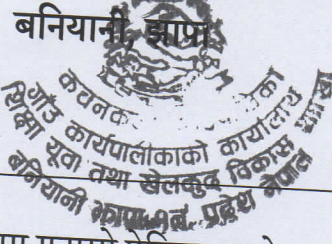 बनियानी, झापा
कचनकवल
गाँउ कार्यपालिकाको कार्यालय
शिक्षा युवा तथा खेलकुद विकास शाखा
बनियानी झापा १ नं. प्रदेश नेपाल